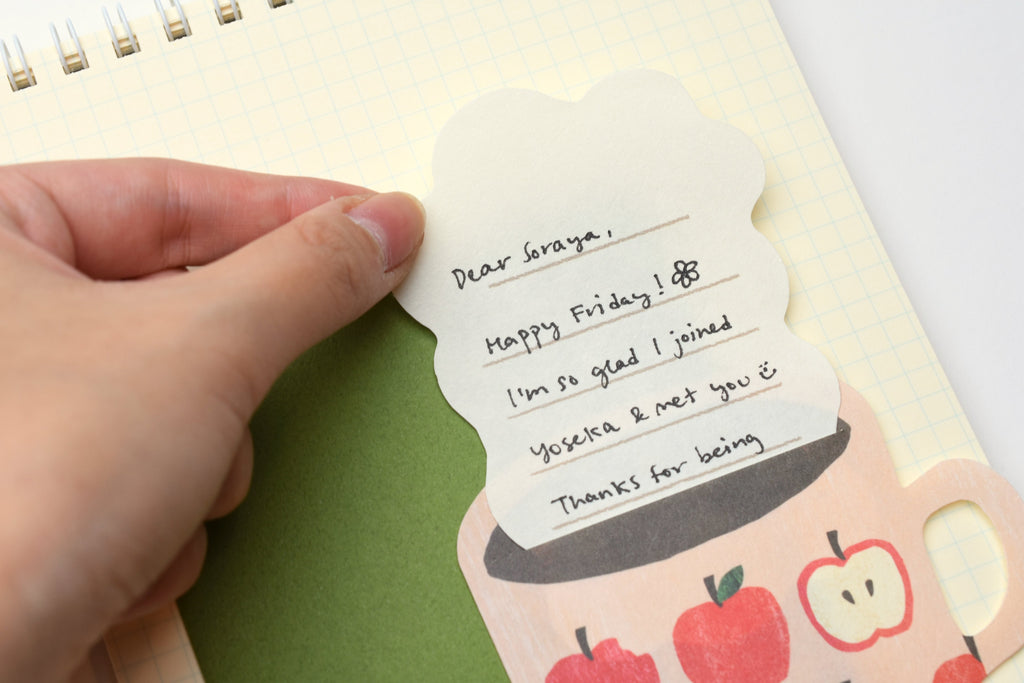 Dear Soraya,
Happy Friday!
I'm so glad I joined
Yoseka & met you
Thanks for being